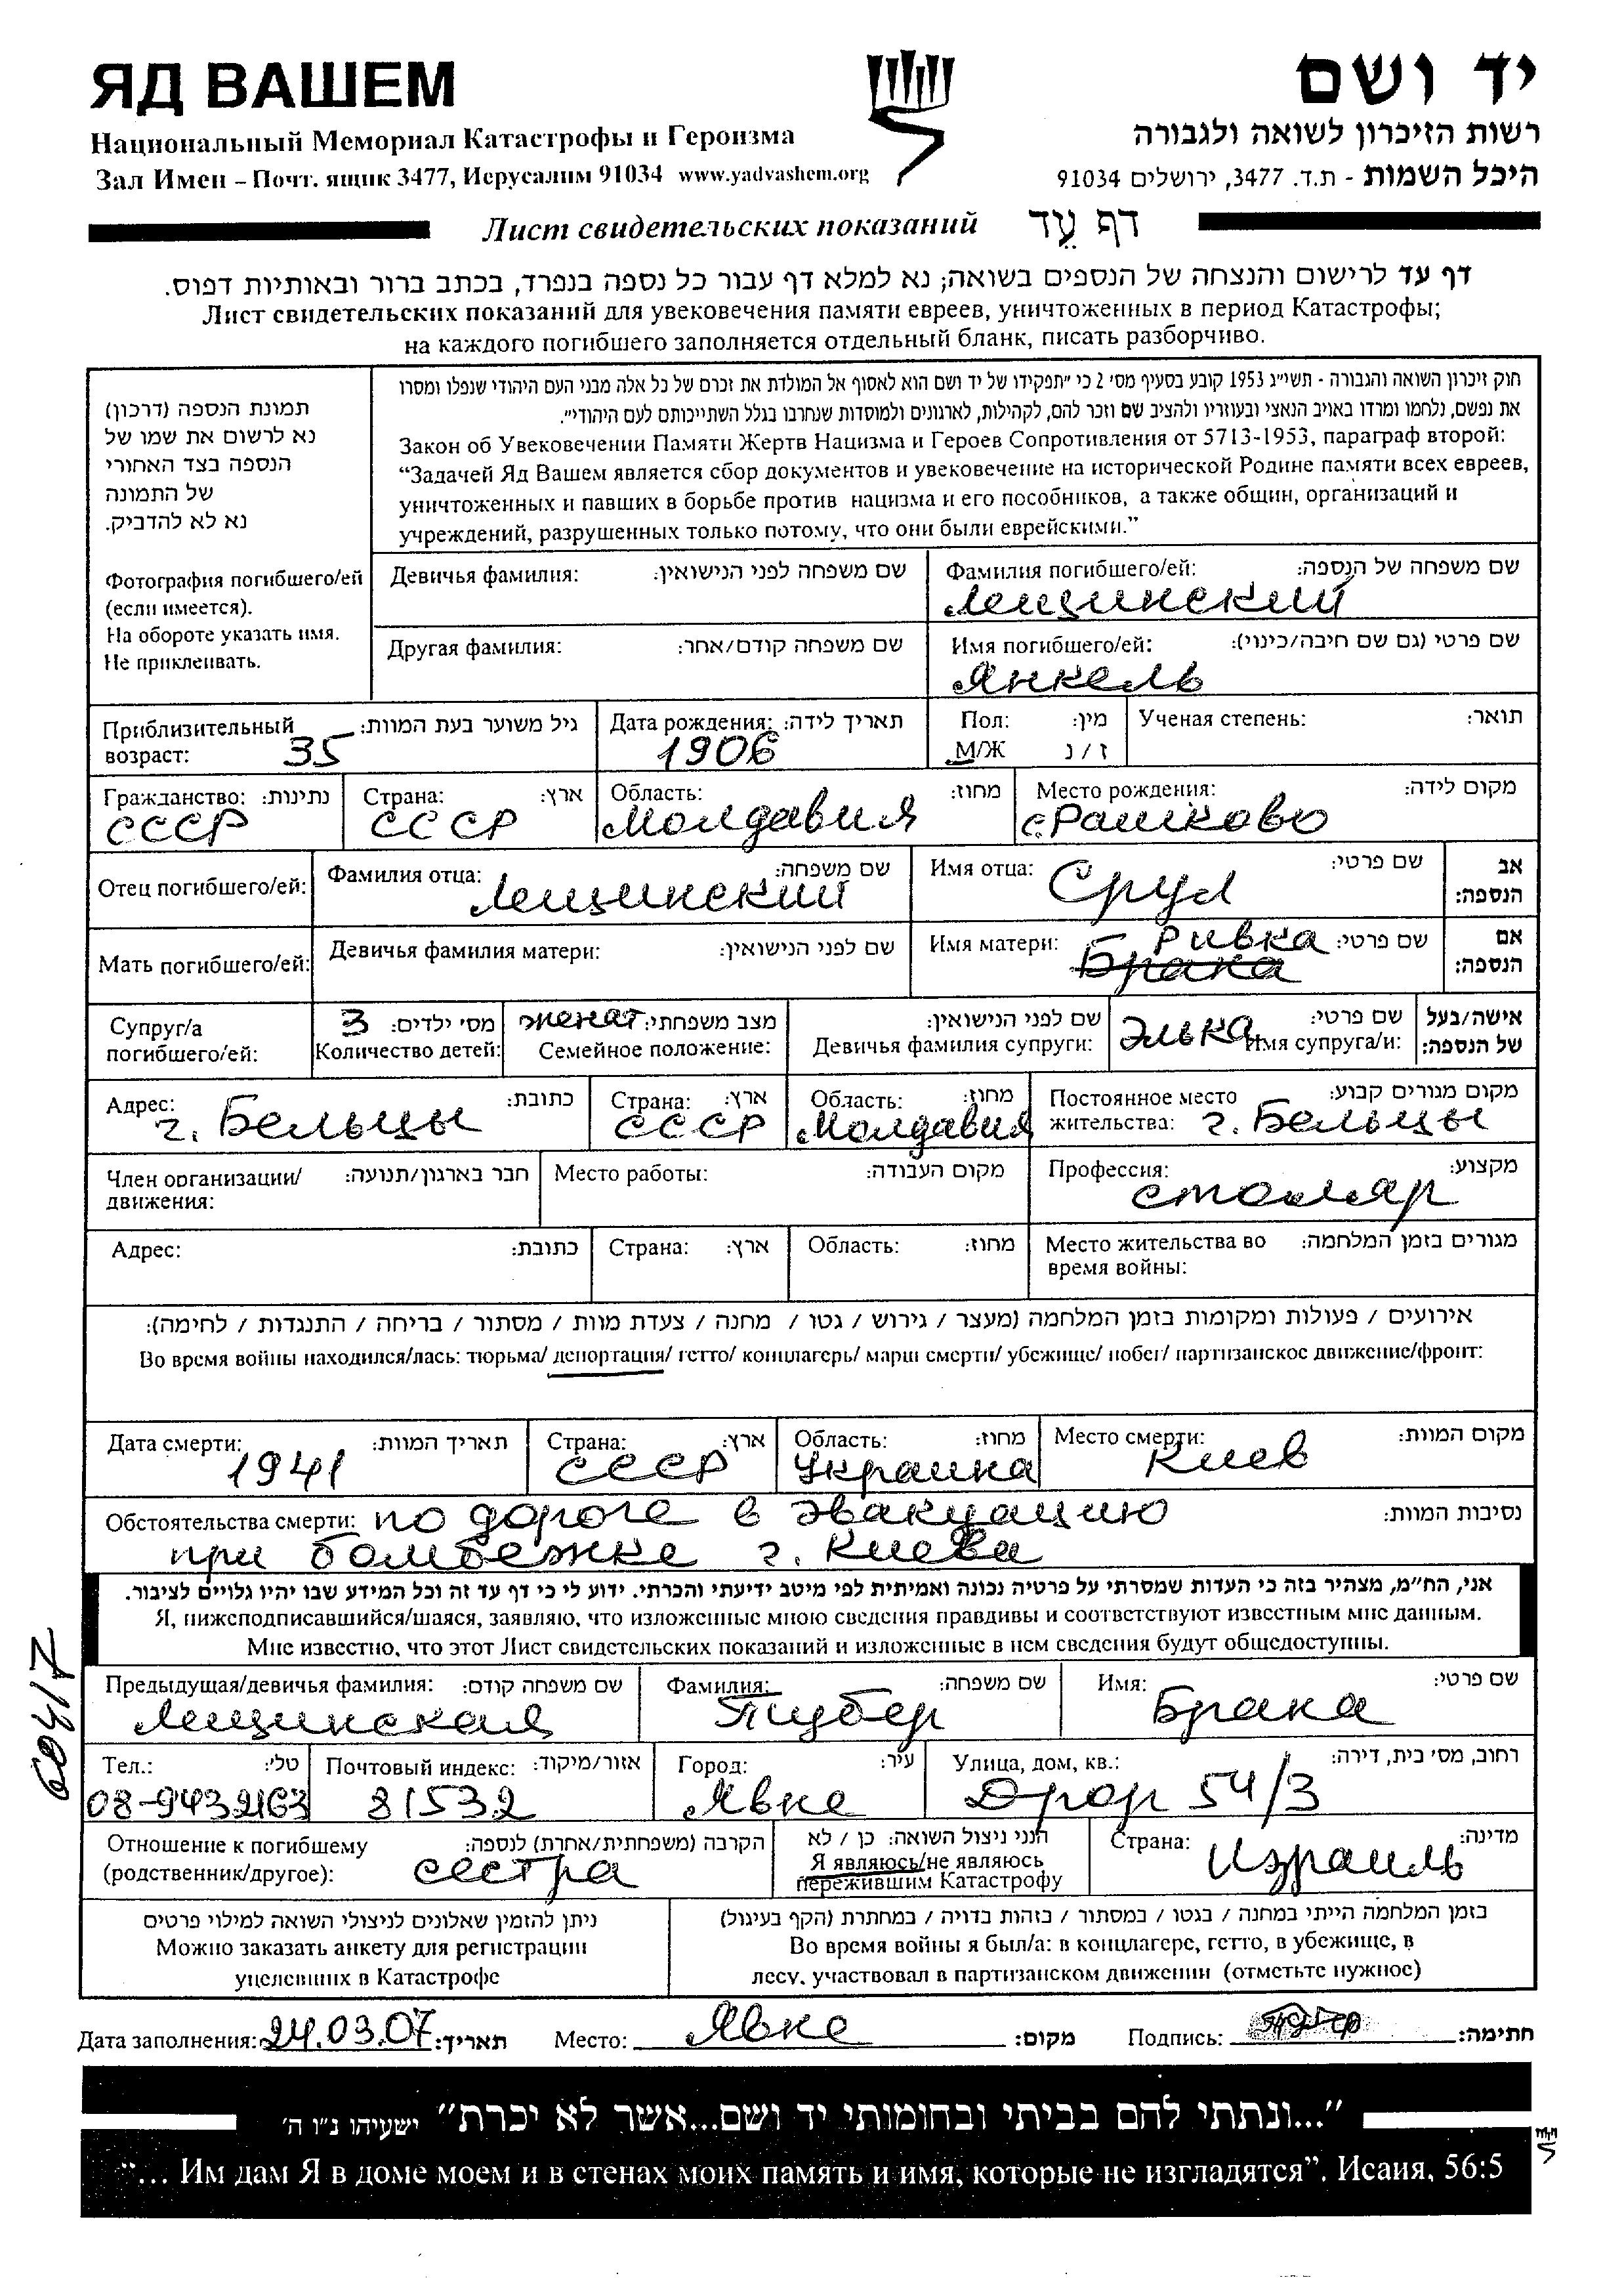 ЯД ВАШЕМ
יד ושם
Национальный Мемориал Катастрофы и Героизма
רשות הזיכרון לשואה ולגבורה
Зал Имен – Почт. ящик 3477, Иерусалим 91034 www.yadvashem.org
היכל השמות - ת.ד. 3477, ירושלים 91034
Лист свидетельских показаний דף עֵד
דף עד לרישום והנצחה של הנספים בשואה; נא למלא דף עבור כל נספה בנפרד, בכתב ברור ובאותיות דפוס.
Лист свидетельских показаний для увековечения памяти евреев, уничтоженных в период Катастрофы;
на каждого погибшего заполняется отдельный бланк, писать разборчиво.
תמונת הנספה (דרכון)
נא לרשום את שמו של
הנספה בצד האחורי
של התמונה
נא לא להדביק.
Фотография погибшего/ей
(если имеется).
На обороте указать имя.
Не приклеивать.
חוק זיכרון השואה והגבורה - תשי"ג 1953 קובע בסעיף מס' 2 כי "תפקידו של יד ושם הוא לאסוף אל המולדת את זכרם של כל אלה מבני העם היהודי שנפלו ומסרו
את נפשם, נלחמו ומרדו באויב הנאצי ובעוזריו ולהציב שם וזכר להם, לקהילות, לארגונים ולמוסדות שנחרבו בגלל השתייכותם לעם היהודי".
Закон об Увековечении Памяти Жертв Нацизма и Героев Сопротивления от 5713-1953, параграф второй:
“Задачей Яд Вашем является сбор документов и увековечение на исторической Родине памяти всех евреев,
уничтоженных и павших в борьбе против нацизма и его пособников, а также общин, организаций и
учреждений, разрушенных только потому, что они были еврейскими.”
Девичья фамилия: שם משפחה לפני הנישואין:
Фамилия погибшего/ей: שם משפחה של הנספה:
Лещинский
Другая фамилия: שם משפחה קודם/אחר:
Имя погибшего/ей: שם פרטי (גם שם חיבה/כינוי):
Янкель
Приблизительный возраст: 35 גיל משוער בעת המוות:
Дата рождения: תאריך לידה: 1906
Пол: מין: М/Ж ז / נ
Ученая степень: תואר:
Гражданство: נתינות: СССР
Страна: ארץ: СССР
Область: מחוז: Молдавия
Место рождения: מקום לידה: с. Рашково
Отец погибшего/ей:
Фамилия отца: שם משפחה: Лещинский
Имя отца: שם פרטי: Срул
אב הנספה:
Мать погибшего/ей:
Девичья фамилия матери: שם לפני הנישואין:
Имя матери: שם פרטי: Ривка
Брана
אם הנספה:
Супруг/а погибшего/ей:
3 מס' ילדים: Количество детей:
женат מצב משפחתי: Семейное положение:
שם לפני הנישואין: Девичья фамилия супруги:
Элька שם פרטי: Имя супруга/и:
אישה/בעל של הנספה:
Адрес: כתובת: г. Бельцы
Страна: ארץ: СССР
Область: מחוז: Молдавия
Постоянное место жительства: מקום מגורים קבוע: г. Бельцы
Член организации/движения: חבר בארגון/תנועה:
Место работы: מקום העבודה:
Профессия: מקצוע: столяр
Адрес: כתובת:
Страна: ארץ:
Область: מחוז:
Место жительства во время войны: מגורים בזמן המלחמה:
אירועים / פעולות ומקומות בזמן המלחמה (מעצר / גירוש / גטו / מחנה / צעדת מוות / מסתור / בריחה / התנגדות / לחימה):
Во время войны находился/лась: тюрьма/ депортация/ гетто/ концлагерь/ марш смерти/ убежище/ побег/ партизанское движение/фронт:
Дата смерти: תאריך המוות: 1941
Страна: ארץ: СССР
Область: מחוז: Украина
Место смерти: מקום המוות: Киев
Обстоятельства смерти: по дороге в эвакуацию נסיבות המוות:
при бомбежке г. Киева
אני, הח"מ, מצהיר בזה כי העדות שמסרתי על פרטיה נכונה ואמיתית לפי מיטב ידיעתי והכרתי. ידוע לי כי דף עד זה וכל המידע שבו יהיו גלויים לציבור.
Я, нижеподписавшийся/шаяся, заявляю, что изложенные мною сведения правдивы и соответствуют известным мне данным.
Мне известно, что этот Лист свидетельских показаний и изложенные в нем сведения будут общедоступны.
Предыдущая/девичья фамилия: שם משפחה קודם: Лещинская
Фамилия: שם משפחה: Таубер
Имя: שם פרטי: Брана
Тел.: טלי: 08-9432163
Почтовый индекс: אזור/מיקוד: 81532
Город: עיר: Явне
Улица, дом, кв.: רחוב, מס' בית, דירה: Дрор 54/3
Отношение к погибшему (родственник/другое): הקרבה (משפחתית/אחרת) לנספה: сестра
הנני ניצול השואה: כן / לא
Я являюсь/не являюсь
пережившим Катастрофу
Страна: מדינה: Израиль
ניתן להזמין שאלונים לניצולי השואה למילוי פרטים
Можно заказать анкету для регистрации
уцелевших в Катастрофе
בזמן המלחמה הייתי במחנה / בגטו / במסתור / בזהות בדויה / במחתרת (הקף בעיגול)
Во время войны я был/а: в концлагере, гетто, в убежище, в
лесу, участвовал в партизанском движении (отметьте нужное)
Дата заполнения: 24.03.07 תאריך: Место: Явне מקום: Подпись: חתימה:
"...ונתתי להם בביתי ובחומותי יד ושם...אשר לא יכרת" ישעיהו נ"ו ה'
“... Им дам Я в доме моем и в стенах моих память и имя, которые не изгладятся”. Исаия, 56:5